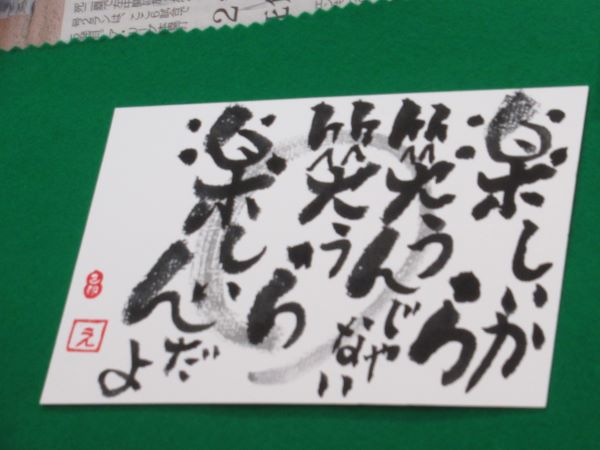 楽しいから
笑うんじゃない
笑うから
楽しいんだよ
え